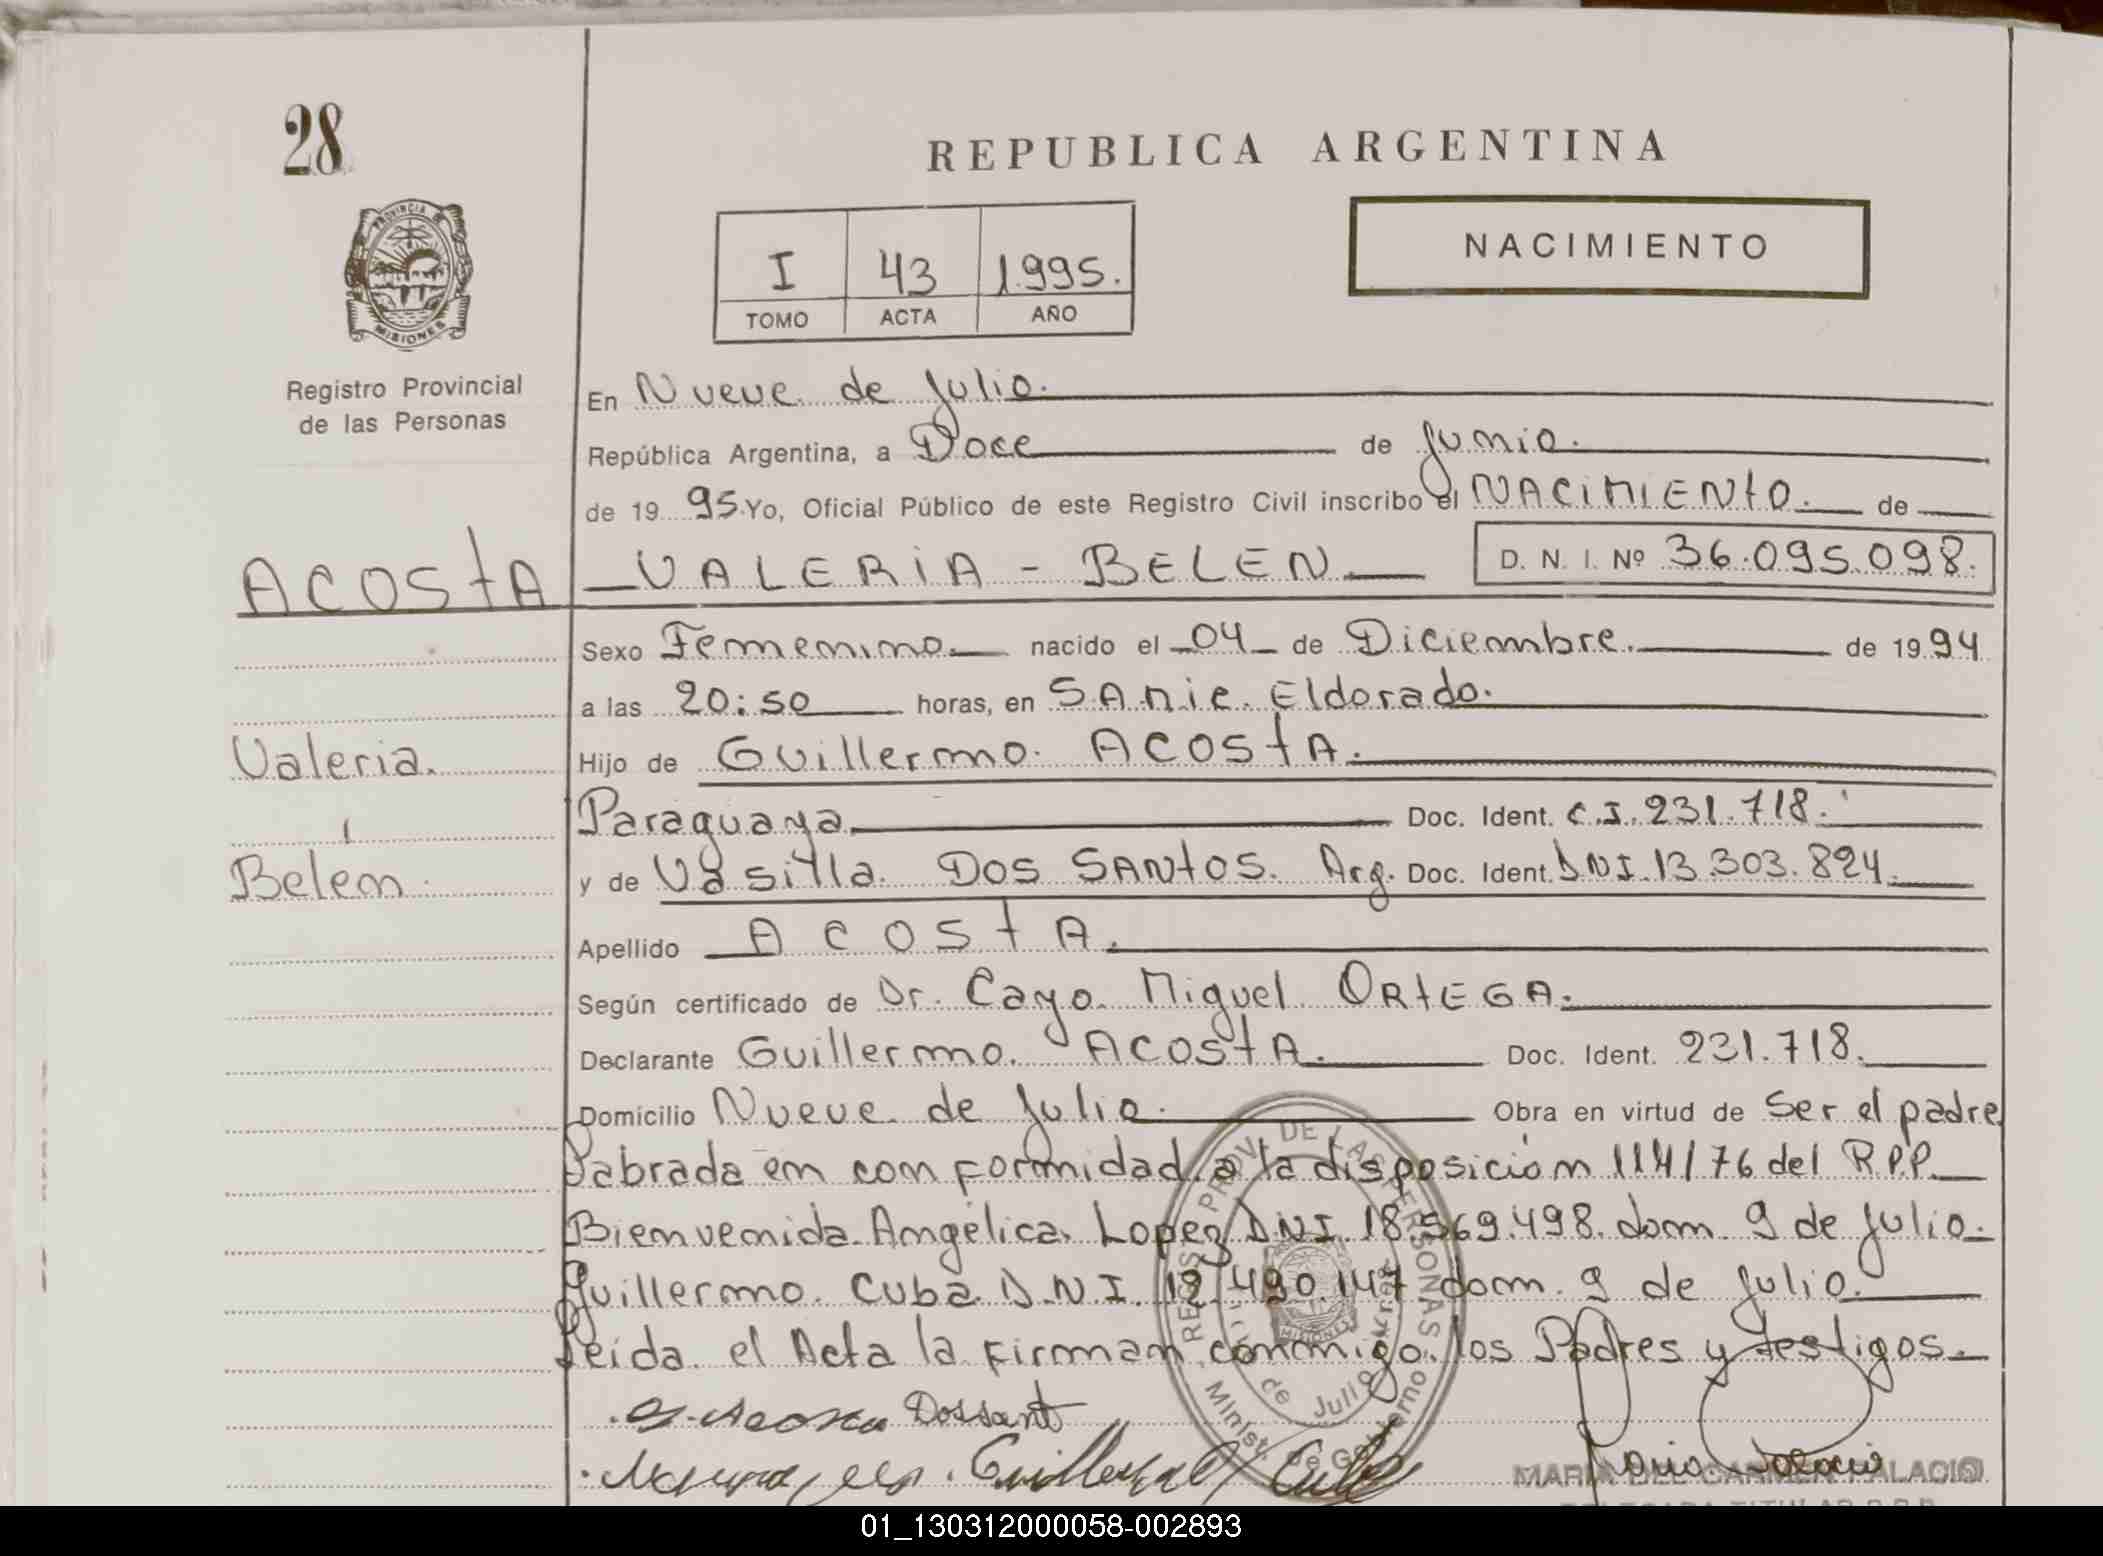 28
REPUBLICA ARGENTINA
PROVINCIA DE
MISIONES
I 43 1.995.
TOMO ACTA AÑO
NACIMIENTO
Registro Provincial
de las Personas
En Nueve de Julio.
República Argentina, a Doce de Junio.
de 19 95. Yo, Oficial Público de este Registro Civil inscribo el NACIMIENTO. de
ACOSTA VALERIA - BELEN. D. N. I. Nº 36.095.098.
Sexo Femenino. nacido el 04 de Diciembre. de 19 94
a las 20:50 horas, en S.A.M.i.c. Eldorado.
Valeria. Hijo de Guillermo. ACOSTA.
Paraguaya. Doc. Ident. C.I. 231.718.
Belén. y de Vasilla. DOS SANTOS. Arg. Doc. Ident. DNI. 13.303.824.
Apellido ACOSTA.
Según certificado de Dr. Cayo. Miguel. ORTEGA.
Declarante Guillermo. ACOSTA. Doc. Ident. 231.718.
Domicilio Nueve de Julio. Obra en virtud de Ser el padre
Labrada en conformidad a la disposición 114/76 del R.P.P.
Bienvenida Angélica. Lopez DNI. 18.569.498. dom. 9 de Julio.
Guillermo. Cuba. D.N.I. 12.490.147 dom. 9 de Julio.
Leida. el Acta la firman conmigo. los Padres y testigos.
REG. PROV. DE LAS PERSONAS
de Julio
MISIONES
Minist. de Gobierno
G. Acosta Dossant
MARIA DEL CARMEN PALACIO
DELEGADA TITULAR R.P.P.
01_130312000058-002893